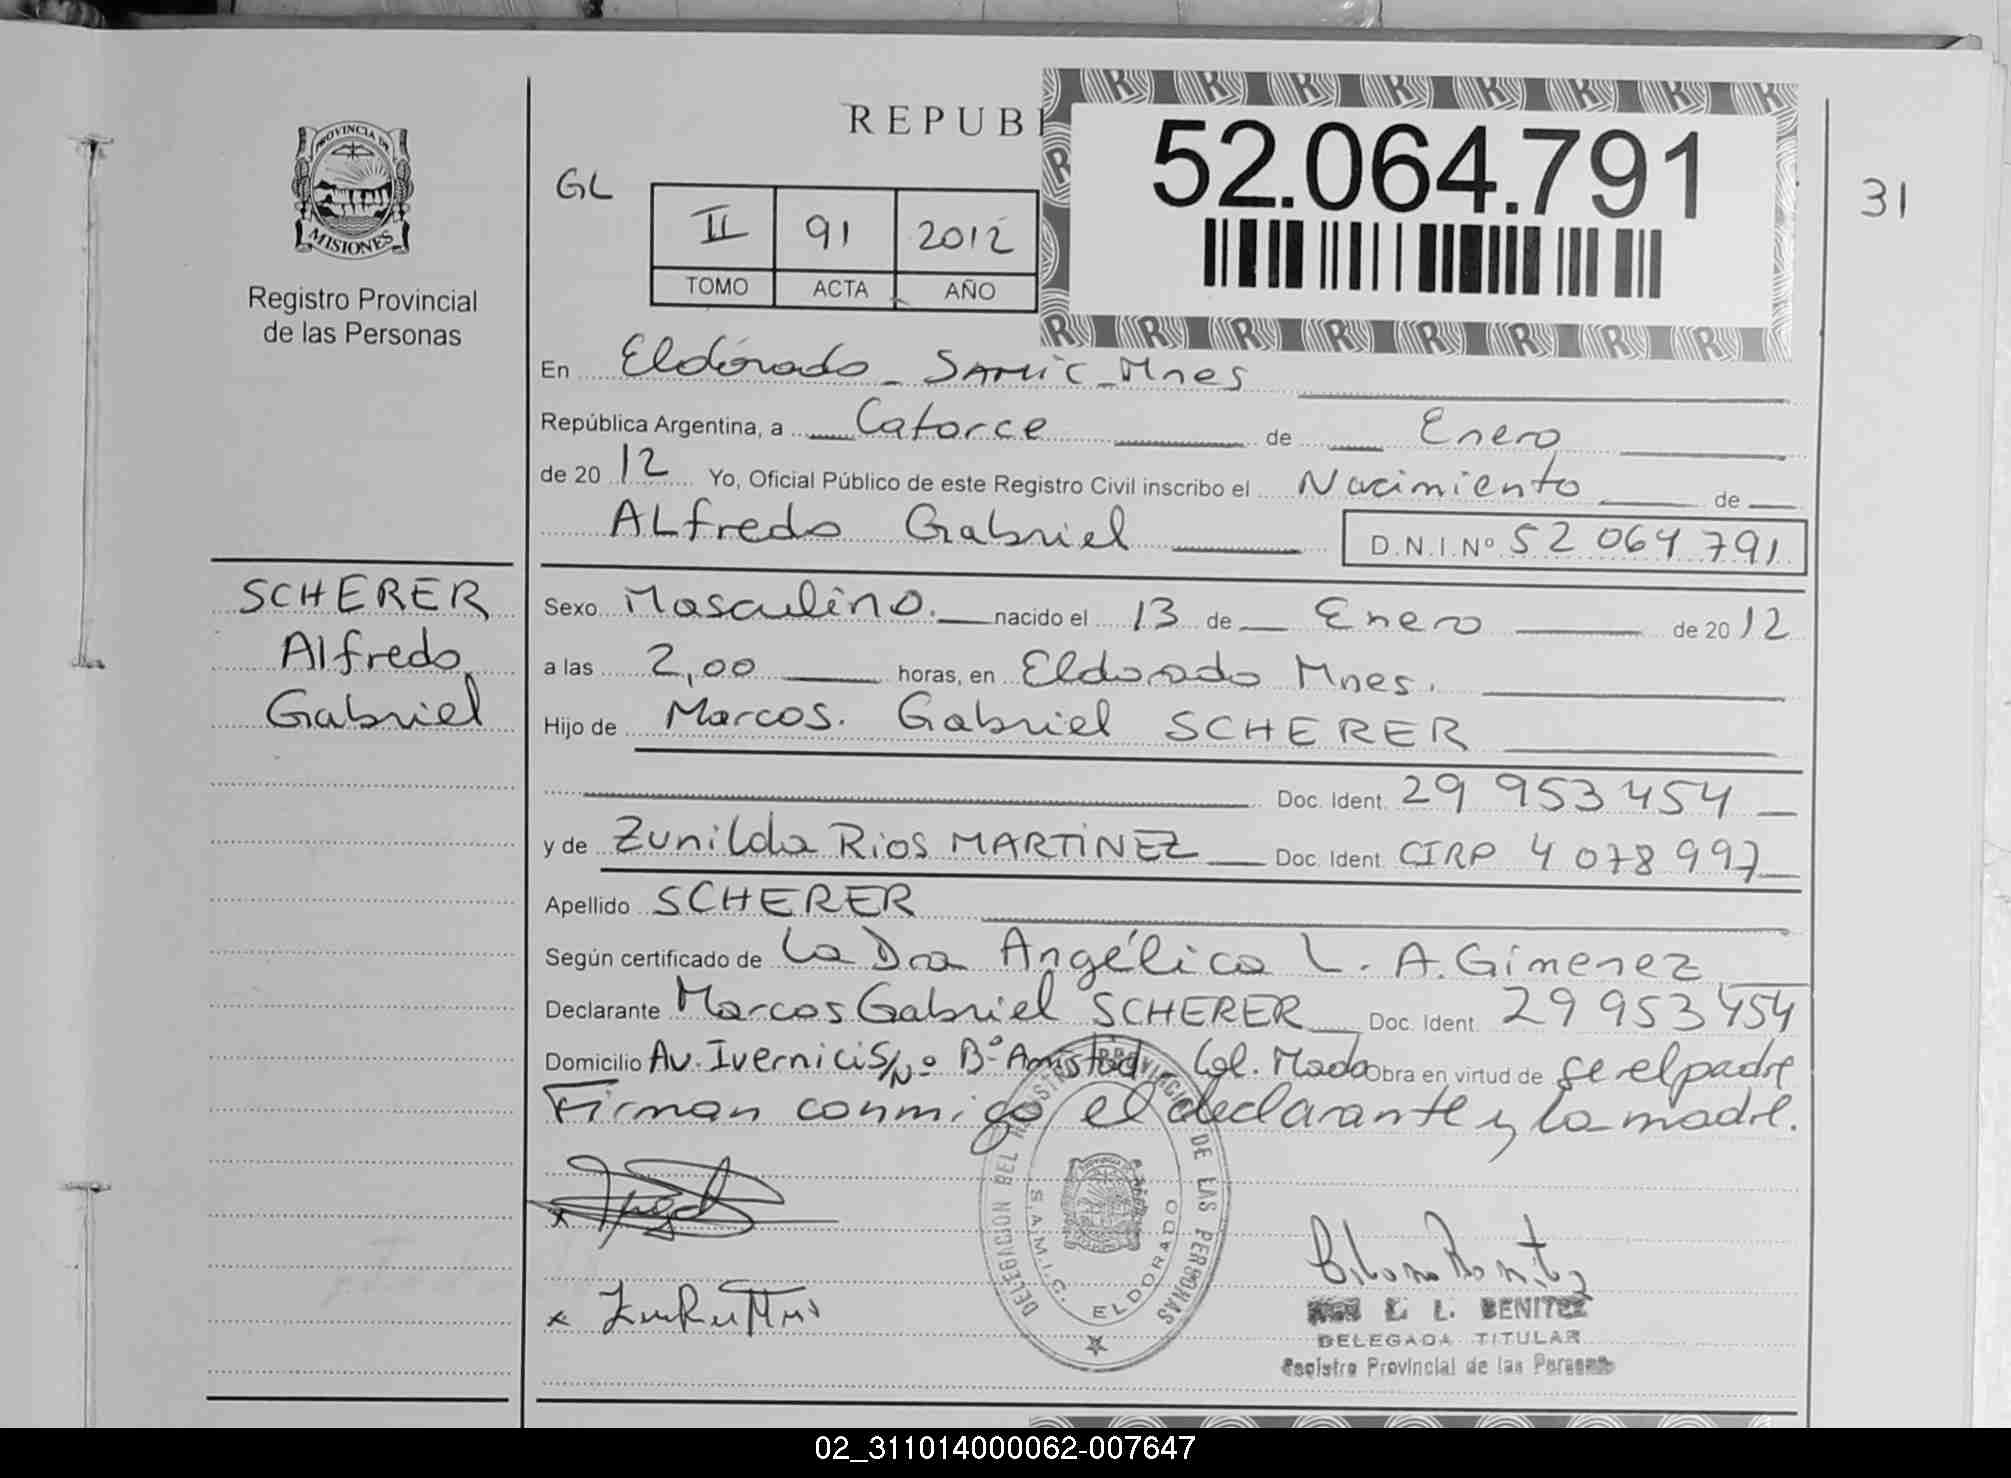 REPUB
52.064.791
PROVINCIA DE
MISIONES
Registro Provincial
de las Personas
GL
31
II 91 2012
TOMO ACTA AÑO
En Eldorado - SAMIC - Mnes
República Argentina, a Catorce de Enero
de 20 12 Yo, Oficial Público de este Registro Civil inscribo el Nacimiento de
ALfredo Gabriel D.N.I.Nº 52 064 791
SCHERER
Alfredo
Gabriel
Sexo Masculino. nacido el 13 de Enero de 20 12
a las 2,00 horas, en Eldorado Mnes.
Hijo de Marcos. Gabriel SCHERER
Doc. Ident. 29 953 454
y de Zunilda Rios MARTINEZ Doc. Ident. CIRP 4 078 997
Apellido SCHERER
Según certificado de La Dra Angélica L. A. Gimenez
Declarante Marcos Gabriel SCHERER Doc. Ident. 29 953 454
Domicilio Av. Ivernici S/Nº Bº Amistad Col. Mado Obra en virtud de se el padre
Firman conmigo el declarante y la madre.
DELEGACION DEL REGISTRO PROVINCIAL DE LAS PERSONAS
S.A.M.I.C. ELDORADO
x
x
L. BENITEZ
DELEGADA TITULAR
Registro Provincial de las Personas
02_311014000062-007647